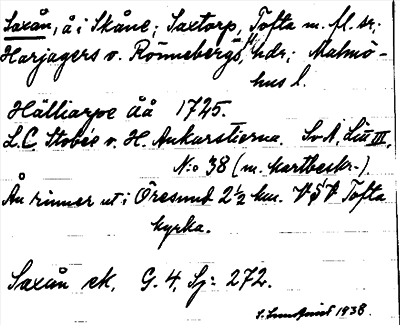 Saxån, å i Skåne; Saxtorp, Tofta m. fl. sr;
Harjagers o. Rönnebergs hdr; Malmö-
hus l.
Hälliarpe Åå 1725.
L.C. Stobée o. H. Ankarstierna. SvA, Lit III,
N:o 38 (m. kartbeskr.)
Ån rinner ut i Öresund 2½ km. VSV Tofta
kyrka.
Saxån ek. G. 4, Sj: 272.
1938.